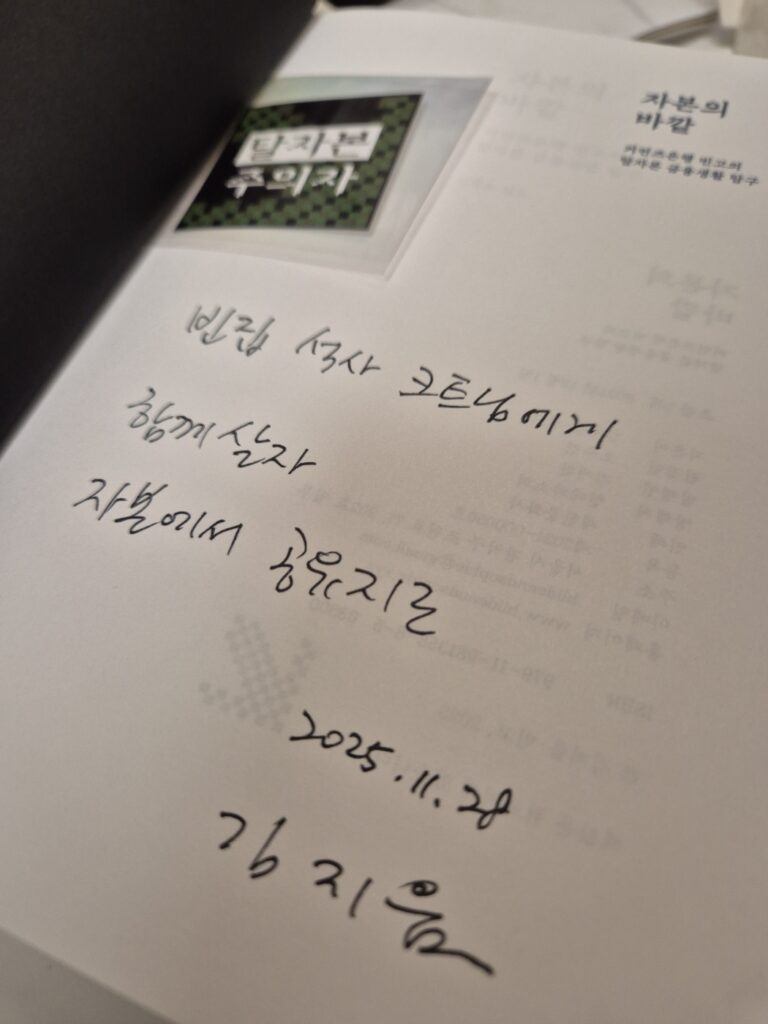 자본의
바깥
커먼즈은행 빈고의
탈자본 금융생활 탐구
탈자본
주의자
빈집 석사 크트님에게
함께 살자
자본에서 공유지로
2025.11.28
김지음